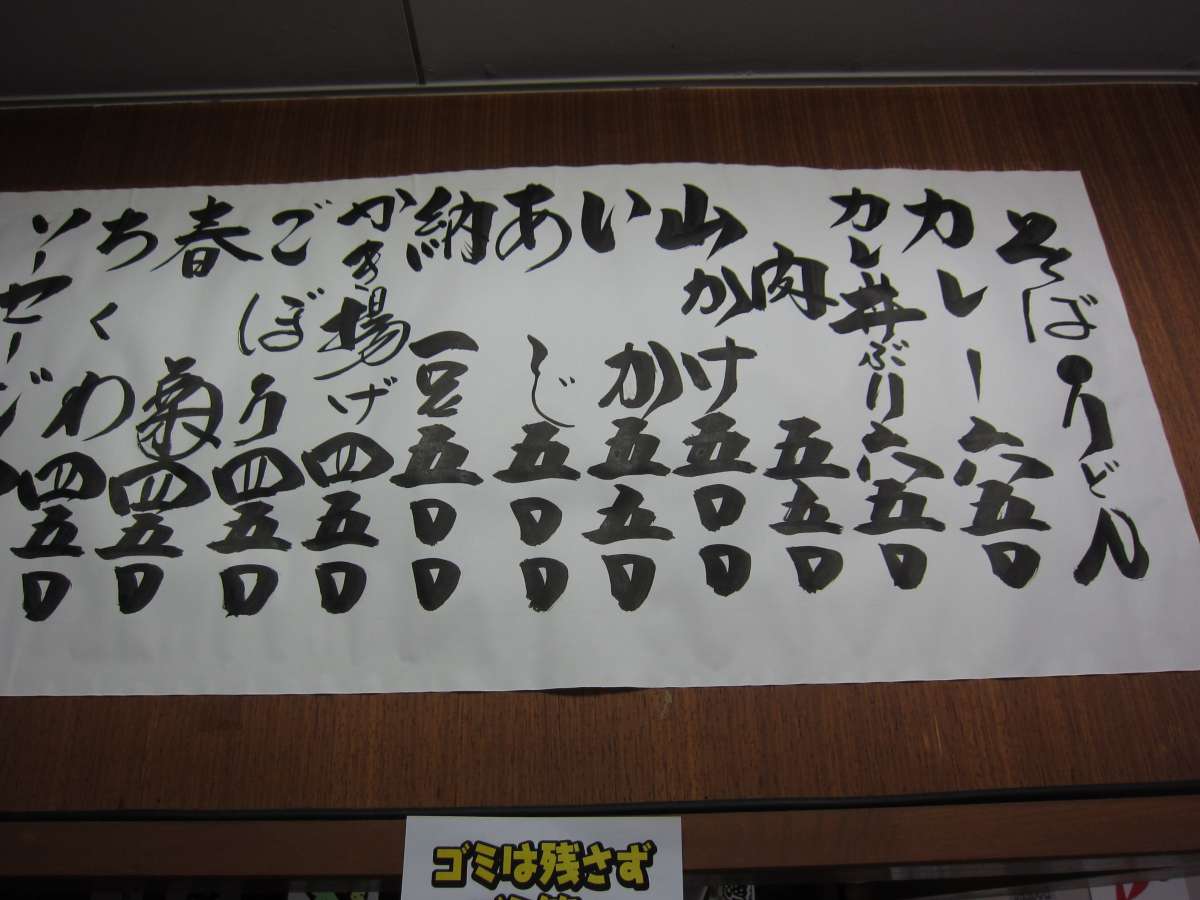 そば・うどん
カレー 六五〇
カレー丼ぶり 六五〇
肉 五五〇
山かけ 五〇〇
いか 五五〇
あじ 五〇〇
納豆 五〇〇
かき揚げ 四五〇
ごぼう 四五〇
春菊 四五〇
ちくわ 四五〇
ソーセージ
ゴミは残さず